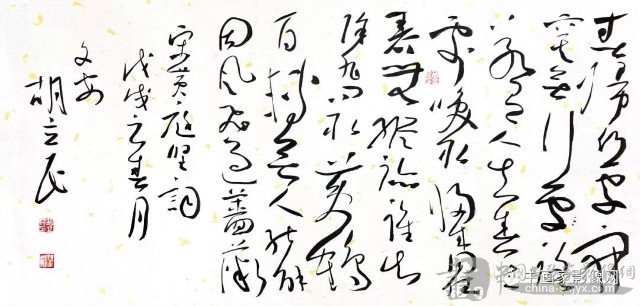 春归何处寂
寞无行路
若有人知春去
处唤取归来同住
春无踪迹谁知
除非问取黄鹂
百啭无人能解
因风飞过蔷薇
宋黄庭坚词
戊戌之春月
文安
胡立民